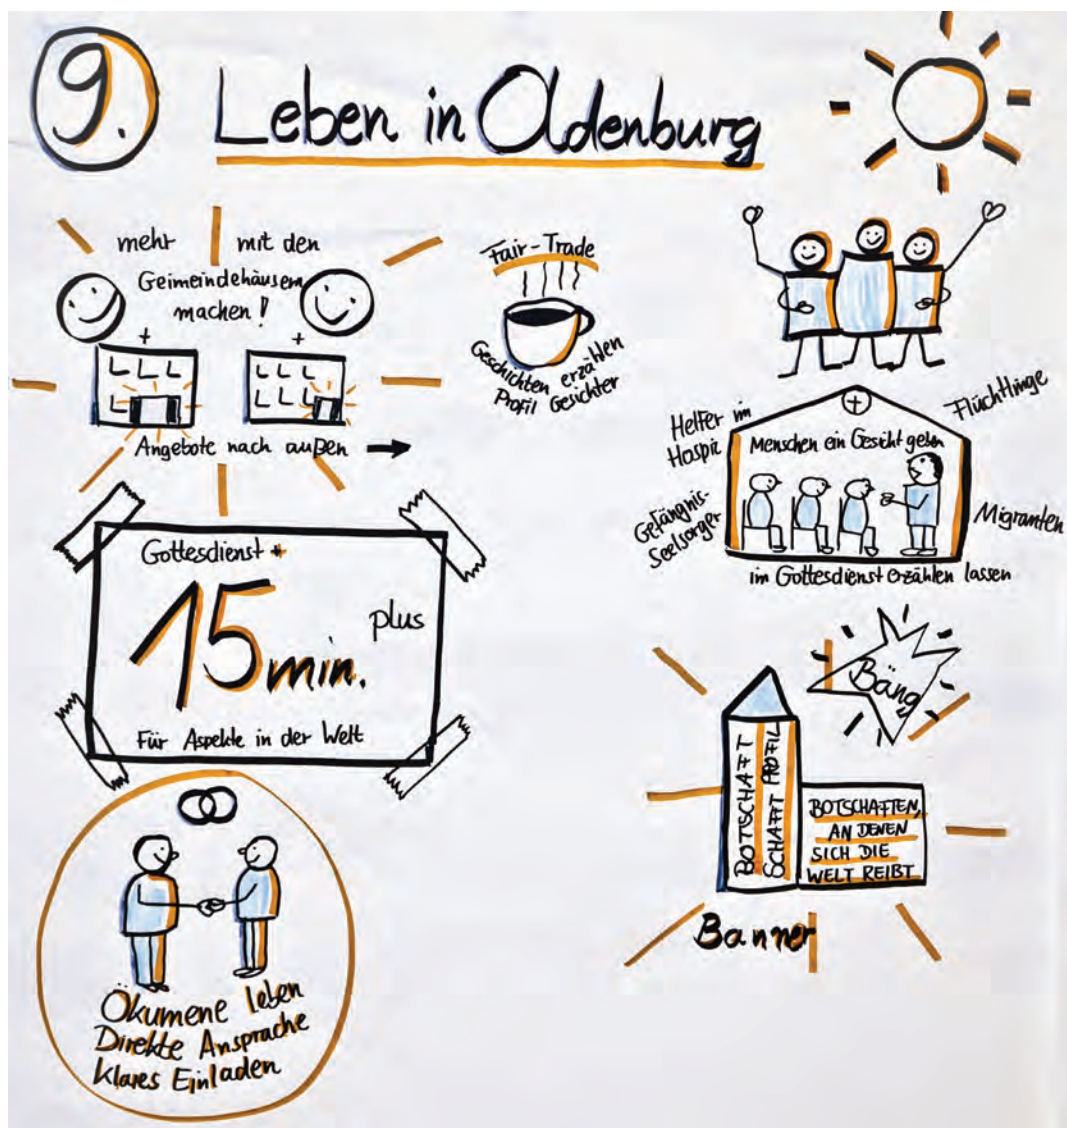 9.
Leben in Oldenburg
mehr mit den
Geimeindehäusern
machen!
Angebote nach außen
Fair-Trade
Geschichten erzählen
Profil Gesichter
Helfer im
Hospiz
Flüchtlinge
Menschen ein Gesicht geben
Gefängnis-
Seelsorger
Migranten
im Gottesdienst erzählen lassen
Gottesdienst +
15 min. plus
Für Aspekte in der Welt
Bäng
BOTSCHAFT
SCHAFFT PROFIL
BOTSCHAFTEN,
AN DENEN
SICH DIE
WELT REIBT
Banner
Ökumene leben
Direkte Ansprache
klares Einladen